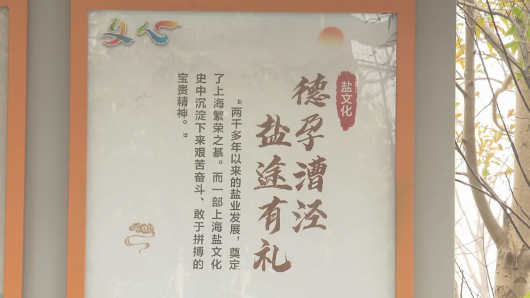 盐文化
德孕漕泾
盐途有礼
“两千多年以来的盐业发展，奠定
了上海繁荣之基。而一部上海盐文化
史中沉淀下来艰苦奋斗、敢于拼搏的
宝贵精神。”